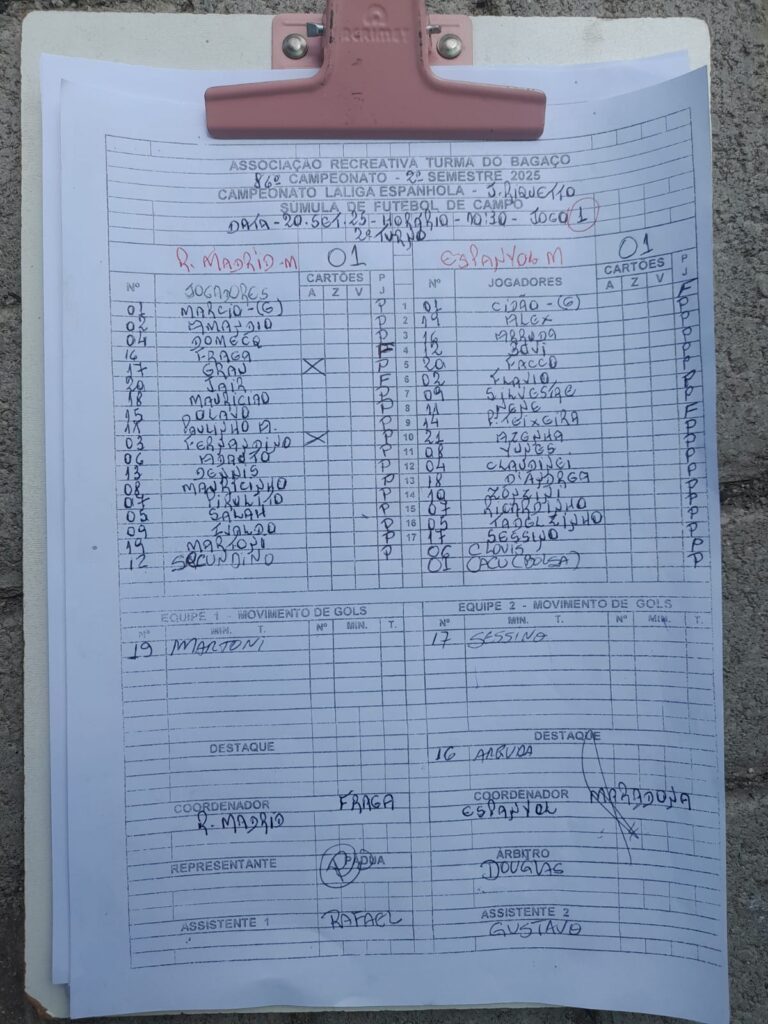 ACRIMET
ASSOCIAÇÃO RECREATIVA TURMA DO BAGAÇO
86º CAMPEONATO - 2º SEMESTRE 2025
CAMPEONATO LALIGA ESPANHOLA - J. RIQUETTO
SUMULA DE FUTEBOL DE CAMPO
DATA - 20.SET.25 - HORÁRIO - 10:30 - JOGO 1
2º TURNO
R. MADRID - M 01 ESPANYOL M 01
Nº JOGADORES CARTÕES A Z V P J Nº JOGADORES CARTÕES A Z V P J
01 MARCIO - (G) P 1 01 CIDÃO - (G)
02 AMANDIO P 2 19 ALEX
04 DOMECQ P 3 16 ARRUDA
16 FRAGA F 4 12 BOVI
17 GRAN X P 5 20 FACCO
20 JAIR F 6 02 FLAVIO
18 MAURICIÃO P 7 09 SILVESTRE
15 POLACO P 8 11 NENE
11 PAULINHO A. P 9 14 P. TEIXEIRA
03 FERNANDINO X P 10 21 AZENHA
06 P 11 08 NUNES
13 DENNIS P 12 04 CLAUDINEI
08 MAURICINHO P 13 18 D'ANDREA
07 PIRULITO P 14 10 ZONZINI
05 SALAH P 15 07 RICARDINHO
09 P 16 05 TADEUZINHO
19 MARTONI P 17 17 SESSINO
12 SECUNDINO P 06 CLOVIS P
01 CACU (BOLSA) P
EQUIPE 1 - MOVIMENTO DE GOLS EQUIPE 2 - MOVIMENTO DE GOLS
Nº MIN. T. Nº MIN. T. Nº MIN. T. Nº MIN. T.
19 MARTONI 17 SESSINO
DESTAQUE DESTAQUE
16 ARRUDA
COORDENADOR FRAGA COORDENADOR MARADONA
R. MADRID ESPANYOL
REPRESENTANTE PADUA ÁRBITRO
DOUGLAS
ASSISTENTE 1 RAFAEL ASSISTENTE 2
GUSTAVO